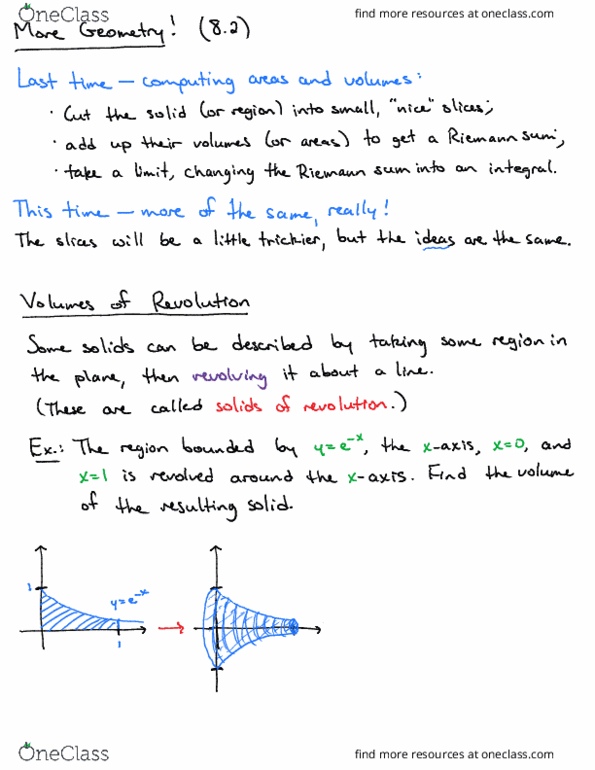 OneClass
find more resources at oneclass.com
More Geometry! (8.2)
Last time — computing areas and volumes:
· Cut the solid (or region) into small, "nice" slices;
· add up their volumes (or areas) to get a Riemann sum;
· take a limit, changing the Riemann sum into an integral.
This time — more of the same, really!
The slices will be a little trickier, but the ideas are the same.
Volumes of Revolution
Some solids can be described by taking some region in
the plane, then revolving it about a line.
(These are called solids of revolution.)
Ex.: The region bounded by y=e^-x, the x-axis, x=0, and
x=1 is revolved around the x-axis. Find the volume
of the resulting solid.
1
y=e^-x
1
OneClass
find more resources at oneclass.com